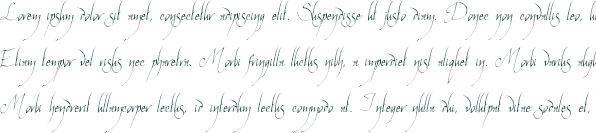 Lorem ipsum dolor sit amet, consectetur adipiscing elit. Suspendisse ut justo diam. Donec non convallis leo,
Etiam tempor vel risus nec pharetra. Morbi fringilla luctus nibh, a imperdiet nisl aliquet in. Morbi varius
Morbi hendrerit ullamcorper lectus, id interdum lectus commodo at. Integer nulla dui, volutpat vitae sodales et,